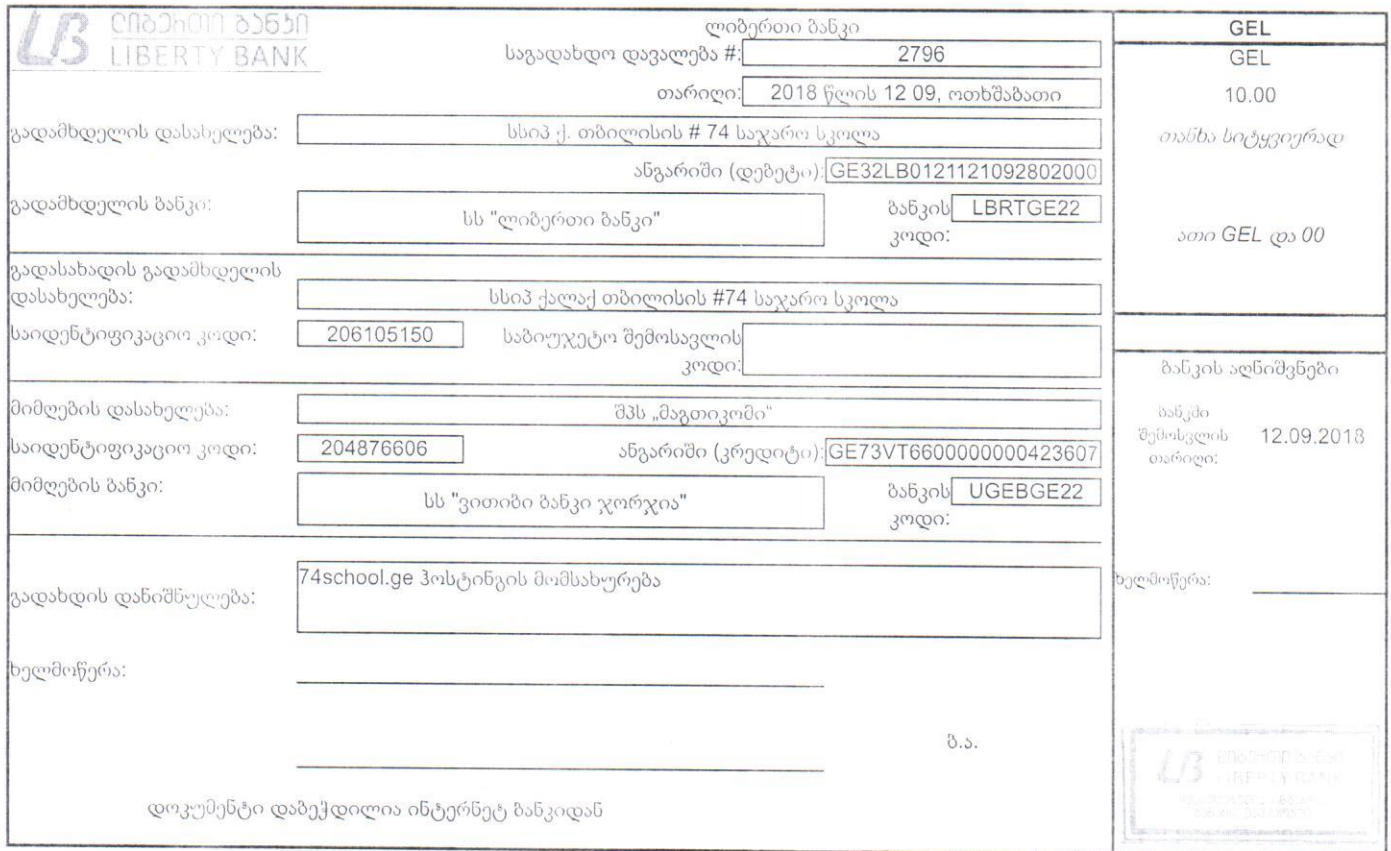 ლიბერთი ბანკი
LIBERTY BANK
ლიბერთი ბანკი
საგადახდო დავალება #: 2796
თარიღი: 2018 წლის 12 09, ოთხშაბათი
გადამხდელის დასახელება: სსიპ ქ. თბილისის # 74 საჯარო სკოლა
ანგარიში (დებეტი): GE32LB0121121092802000
გადამხდელის ბანკი: სს "ლიბერთი ბანკი" ბანკის კოდი: LBRTGE22
გადასახადის გადამხდელის
დასახელება: სსიპ ქალაქ თბილისის #74 საჯარო სკოლა
საიდენტიფიკაციო კოდი: 206105150 საბიუჯეტო შემოსავლის
კოდი:
მიმღების დასახელება: შპს „მაგთიკომი“
საიდენტიფიკაციო კოდი: 204876606 ანგარიში (კრედიტი): GE73VT6600000000423607
მიმღების ბანკი: სს "ვითიბი ბანკი ჯორჯია" ბანკის კოდი: UGEBGE22
გადახდის დანიშნულება: 74school.ge ჰოსტინგის მომსახურება
ხელმოწერა:
ბ.ა.
დოკუმენტი დაბეჭდილია ინტერნეტ ბანკიდან
GEL
GEL
10.00
თანხა სიტყვიერად
ათი GEL და 00
ბანკის აღნიშვნები
ბანკში
შემოსვლის 12.09.2018
თარიღი:
ხელმოწერა:
ლიბერთი ბანკი
LIBERTY BANK